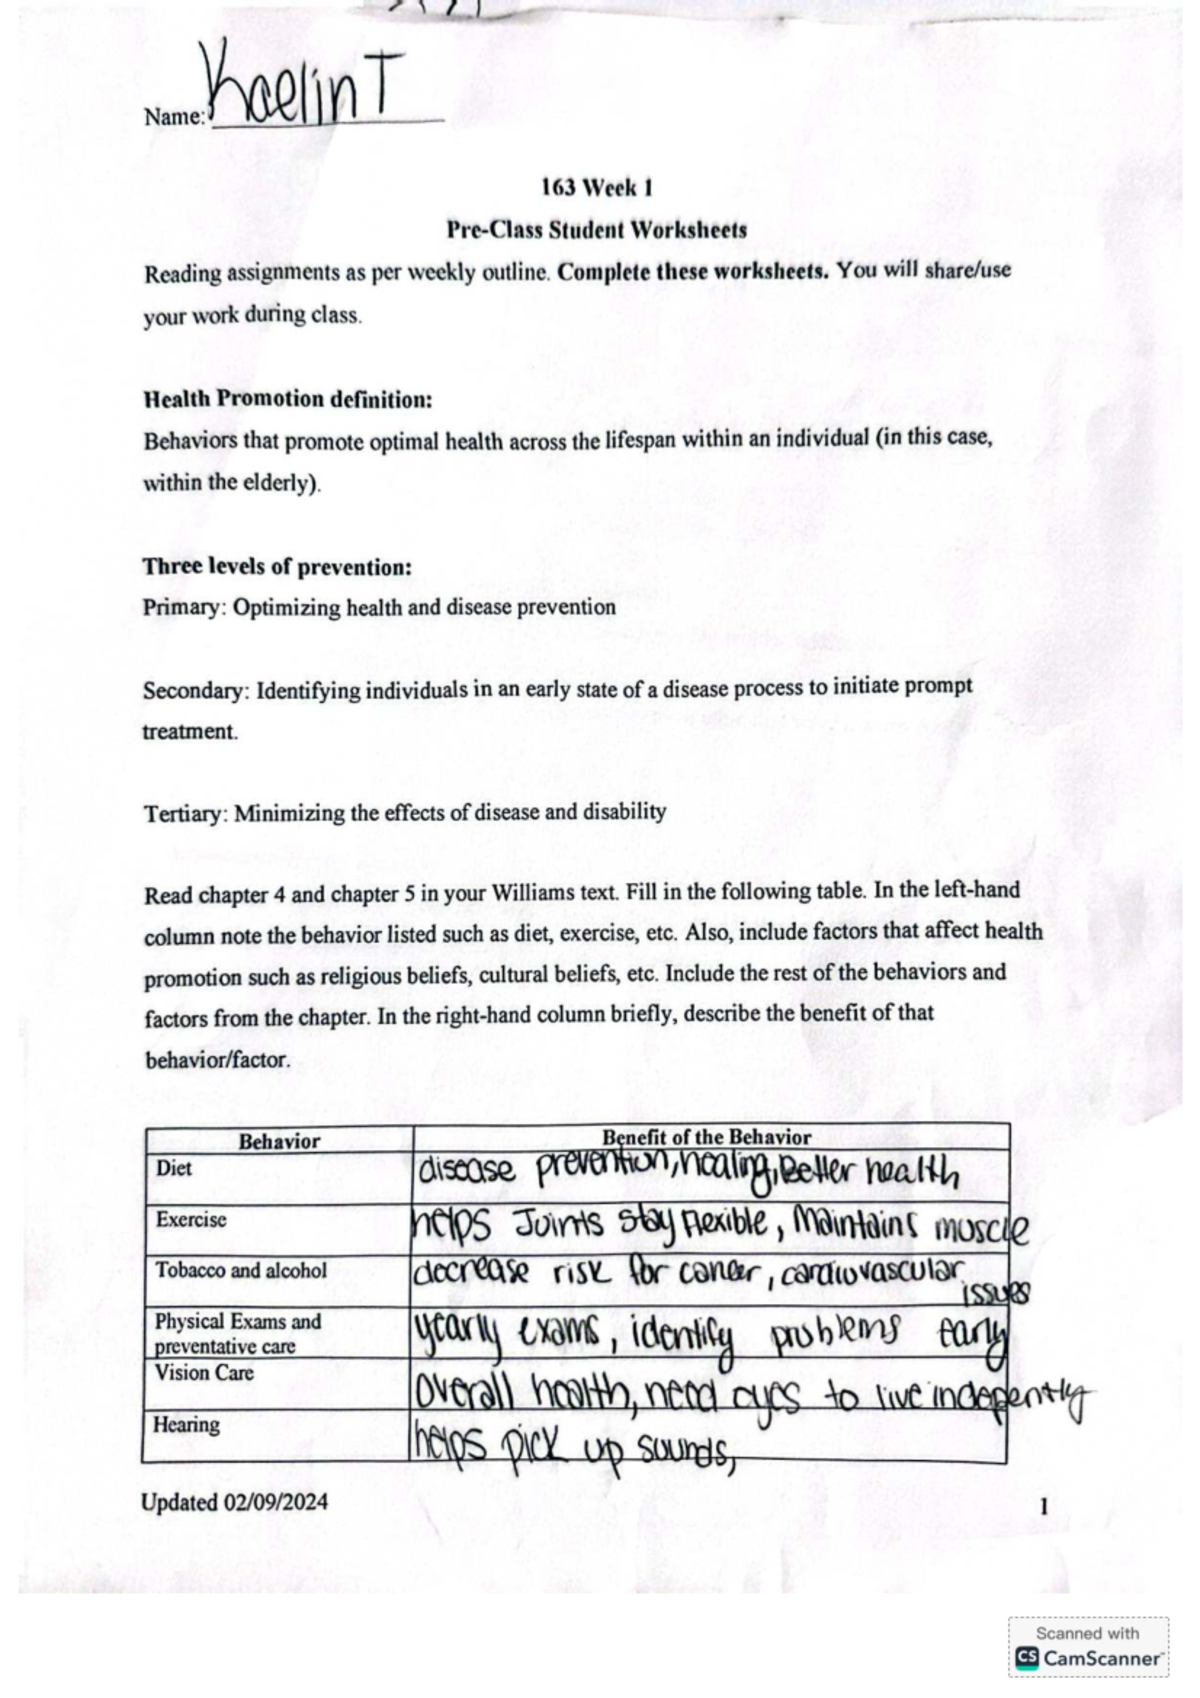 Name: Kaelin T
163 Week 1
Pre-Class Student Worksheets
Reading assignments as per weekly outline. Complete these worksheets. You will share/use
your work during class.
Health Promotion definition:
Behaviors that promote optimal health across the lifespan within an individual (in this case,
within the elderly).
Three levels of prevention:
Primary: Optimizing health and disease prevention
Secondary: Identifying individuals in an early state of a disease process to initiate prompt
treatment.
Tertiary: Minimizing the effects of disease and disability
Read chapter 4 and chapter 5 in your Williams text. Fill in the following table. In the left-hand
column note the behavior listed such as diet, exercise, etc. Also, include factors that affect health
promotion such as religious beliefs, cultural beliefs, etc. Include the rest of the behaviors and
factors from the chapter. In the right-hand column briefly, describe the benefit of that
behavior/factor.
Behavior Benefit of the Behavior
Diet disease prevention, healing, Better health
Exercise helps Joints stay flexible, Maintains muscle
Tobacco and alcohol decrease risk for cancer, cardiovascular
issues
Physical Exams and
preventative care yearly exams, identify problems early
Vision Care overall health, need eyes to live indepently
Hearing helps pick up sounds,
Updated 02/09/2024 1
Scanned with
CS CamScanner